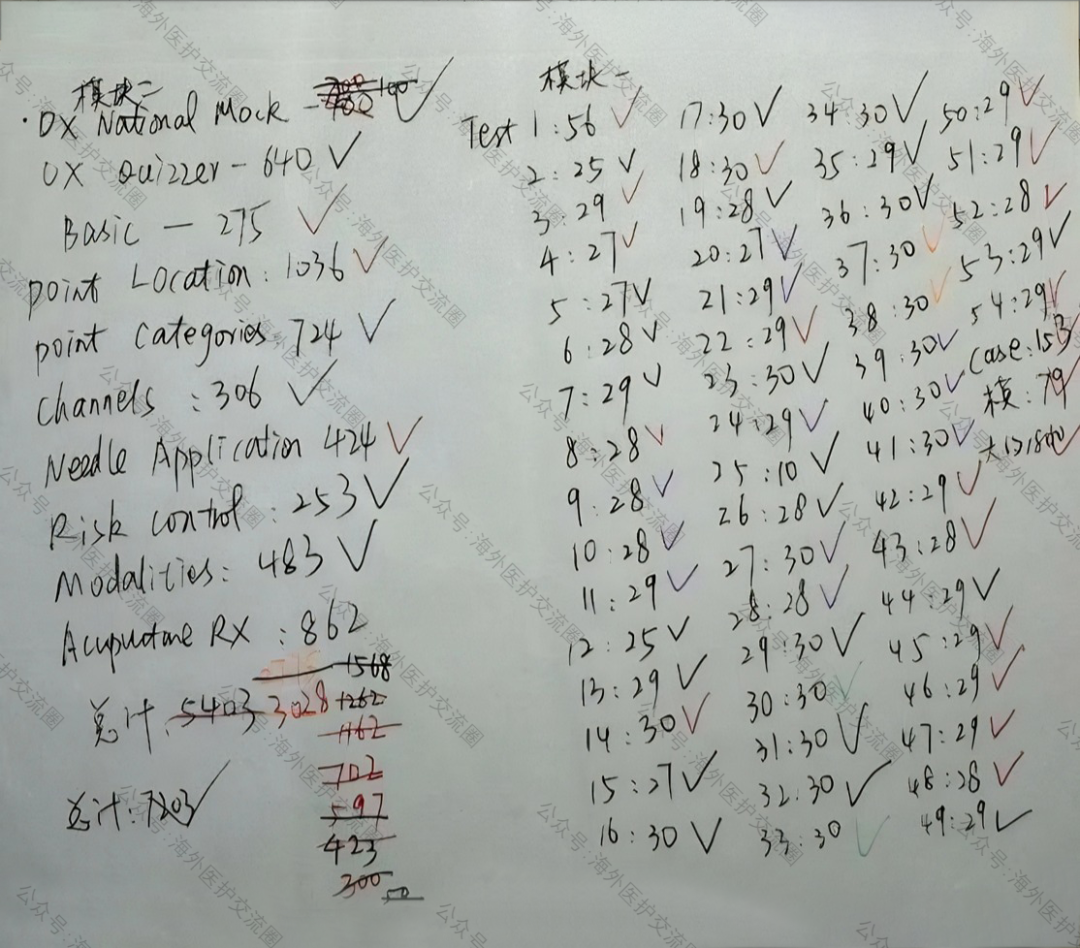 模块二
DX National Mock - 100 ✓
DX Quizzer - 640 ✓
Basic - 275 ✓
point Location: 1036 ✓
point categories 724 ✓
channels : 306 ✓
Needle Application 424 ✓
Risk control : 253 ✓
Modalities: 483 ✓
Acupuncture RX : 862
1568
总计: 5403 3028 1262
1162
702
597
423
300 50
总计: 7203 ✓
模块一
Test 1:56 ✓
2:25 ✓
3:29 ✓
4:27 ✓
5:27 ✓
6:28 ✓
7:29 ✓
8:28 ✓
9:28 ✓
10:28 ✓
11:29 ✓
12:25 ✓
13:29 ✓
14:30 ✓
15:27 ✓
16:30 ✓
17:30 ✓
18:30 ✓
19:28 ✓
20:27 ✓
21:29 ✓
22:29 ✓
23:30 ✓
24:29 ✓
25:10 ✓
26:28 ✓
27:30 ✓
28:28 ✓
29:30 ✓
30:30 ✓
31:30 ✓
32:30 ✓
33:30 ✓
34:30 ✓
35:29 ✓
36:30 ✓
37:30 ✓
38:30 ✓
39:30 ✓
40:30 ✓
41:30 ✓
42:29 ✓
43:28 ✓
44:29 ✓
45:29 ✓
46:29 ✓
47:29 ✓
48:28 ✓
49:29 ✓
50:29 ✓
51:29 ✓
52:28 ✓
53:29 ✓
54:29 ✓
Case:153
模:79 ✓
公众号:海外医护交流圈